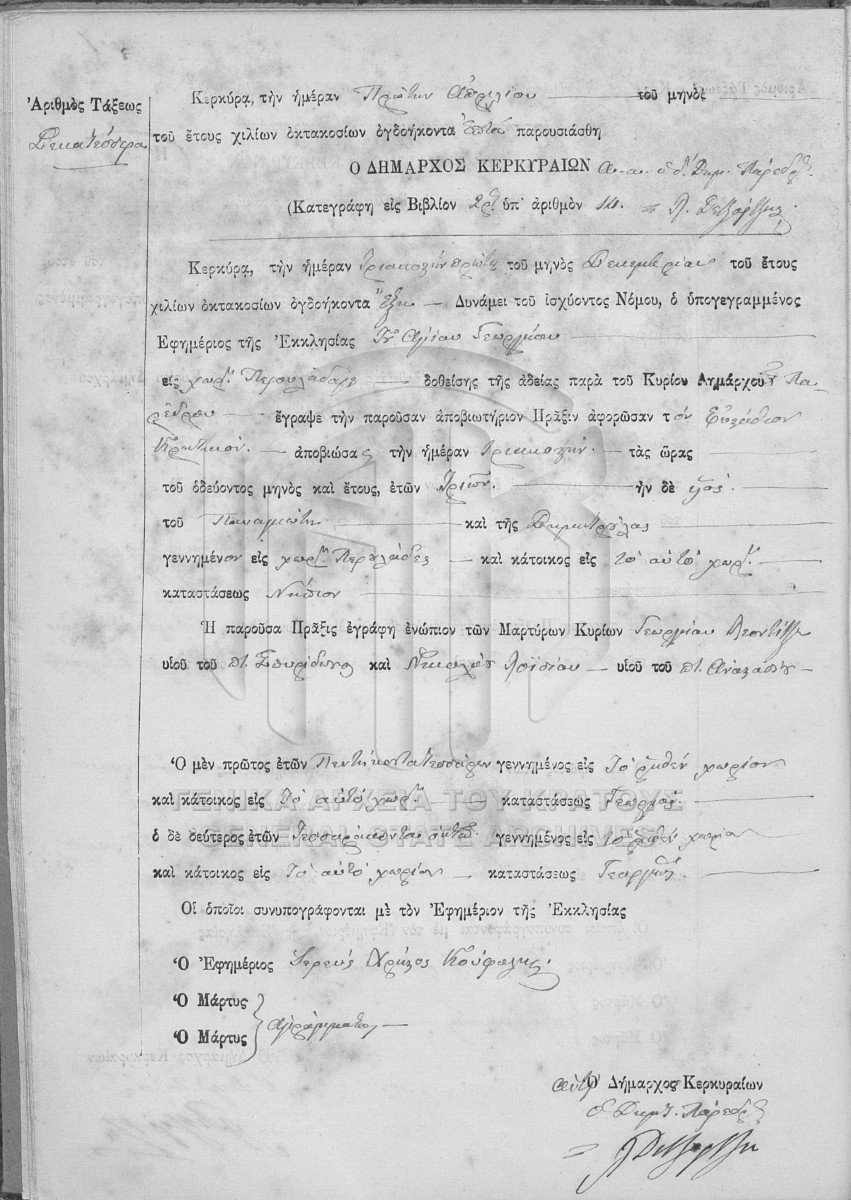 Ἀριθμὸς Τάξεως
Δεκατέσσερα
Κερκύρα, τὴν ἡμέραν Πρώτην Ἀπριλίου τοῦ μηνὸς
τοῦ ἔτους χιλίων ὀκτακοσίων ὀγδοήκοντα ἑπτά παρουσιάσθη
Ο ΔΗΜΑΡΧΟΣ ΚΕΡΚΥΡΑΙΩΝ
(Κατεγράφη εἰς Βιβλίον ὑπ' ἀριθμὸν 14.
Κερκύρα, τὴν ἡμέραν Τριακοστήν πρώτην τοῦ μηνὸς Δεκεμβρίου τοῦ ἔτους
χιλίων ὀκτακοσίων ὀγδοήκοντα Ἕξη — Δυνάμει τοῦ ἰσχύοντος Νόμου, ὁ ὑπογεγραμμένος
Ἐφημέριος τῆς Ἐκκλησίας τοῦ Ἁγίου Γεωργίου
εἰς χωρ. δοθείσης τῆς ἀδείας παρὰ τοῦ Κυρίου Δημάρχου Πα-
ρέδρου — ἔγραψε τὴν παροῦσαν ἀποβιωτήριον Πρᾶξιν ἀφορῶσαν τόν
Κρητικόν. — ἀποβιώσας τὴν ἡμέραν Τριακοστήν. — τὰς ὥρας
τοῦ ὁδεύοντος μηνὸς καὶ ἔτους, ἐτῶν Τριῶν. — ἦν δὲ υἱός.
τοῦ Παναγιώτη — καὶ τῆς Δημητρούλας
γεννημένον εἰς χωρ. Περουλάδες — καὶ κάτοικος εἰς τό αὐτό χωρ.
καταστάσεως Νήπιον
Ἡ παροῦσα Πρᾶξις ἐγράφη ἐνώπιον τῶν Μαρτύρων Κυρίων Γεωργίου
υἱοῦ τοῦ π. Σπυρίδωνος καὶ Νικολάου — υἱοῦ τοῦ π. Ἀναστασίου —
Ὁ μὲν πρῶτος ἐτῶν Πεντήκοντα τεσσάρων γεννημένος εἰς τό ῥηθέν χωρίον
καὶ κάτοικος εἰς τό αὐτό χωρ. — καταστάσεως Γεωργός.
ὁ δὲ δεύτερος ἐτῶν Τεσσαράκοντα ὀκτώ. γεννημένος εἰς τό ῥηθέν χωρίον
καὶ κάτοικος εἰς τό αὐτό χωρίον — καταστάσεως Γεωργός.
Οἱ ὁποῖοι συνυπογράφονται μὲ τὸν Ἐφημέριον τῆς Ἐκκλησίας
Ὁ Ἐφημέριος Ἱερεύς
Ὁ Μάρτυς
Ὁ Μάρτυς
Ἀγράμματοι —
Ὁ Δήμαρχος Κερκυραίων
ὁ Δημτ. Πάρεδρος
ΓΕΝΙΚΑ ΑΡΧΕΙΑ ΤΟΥ ΚΡΑΤΟΥΣ
GENERAL STATE ARCHIVES